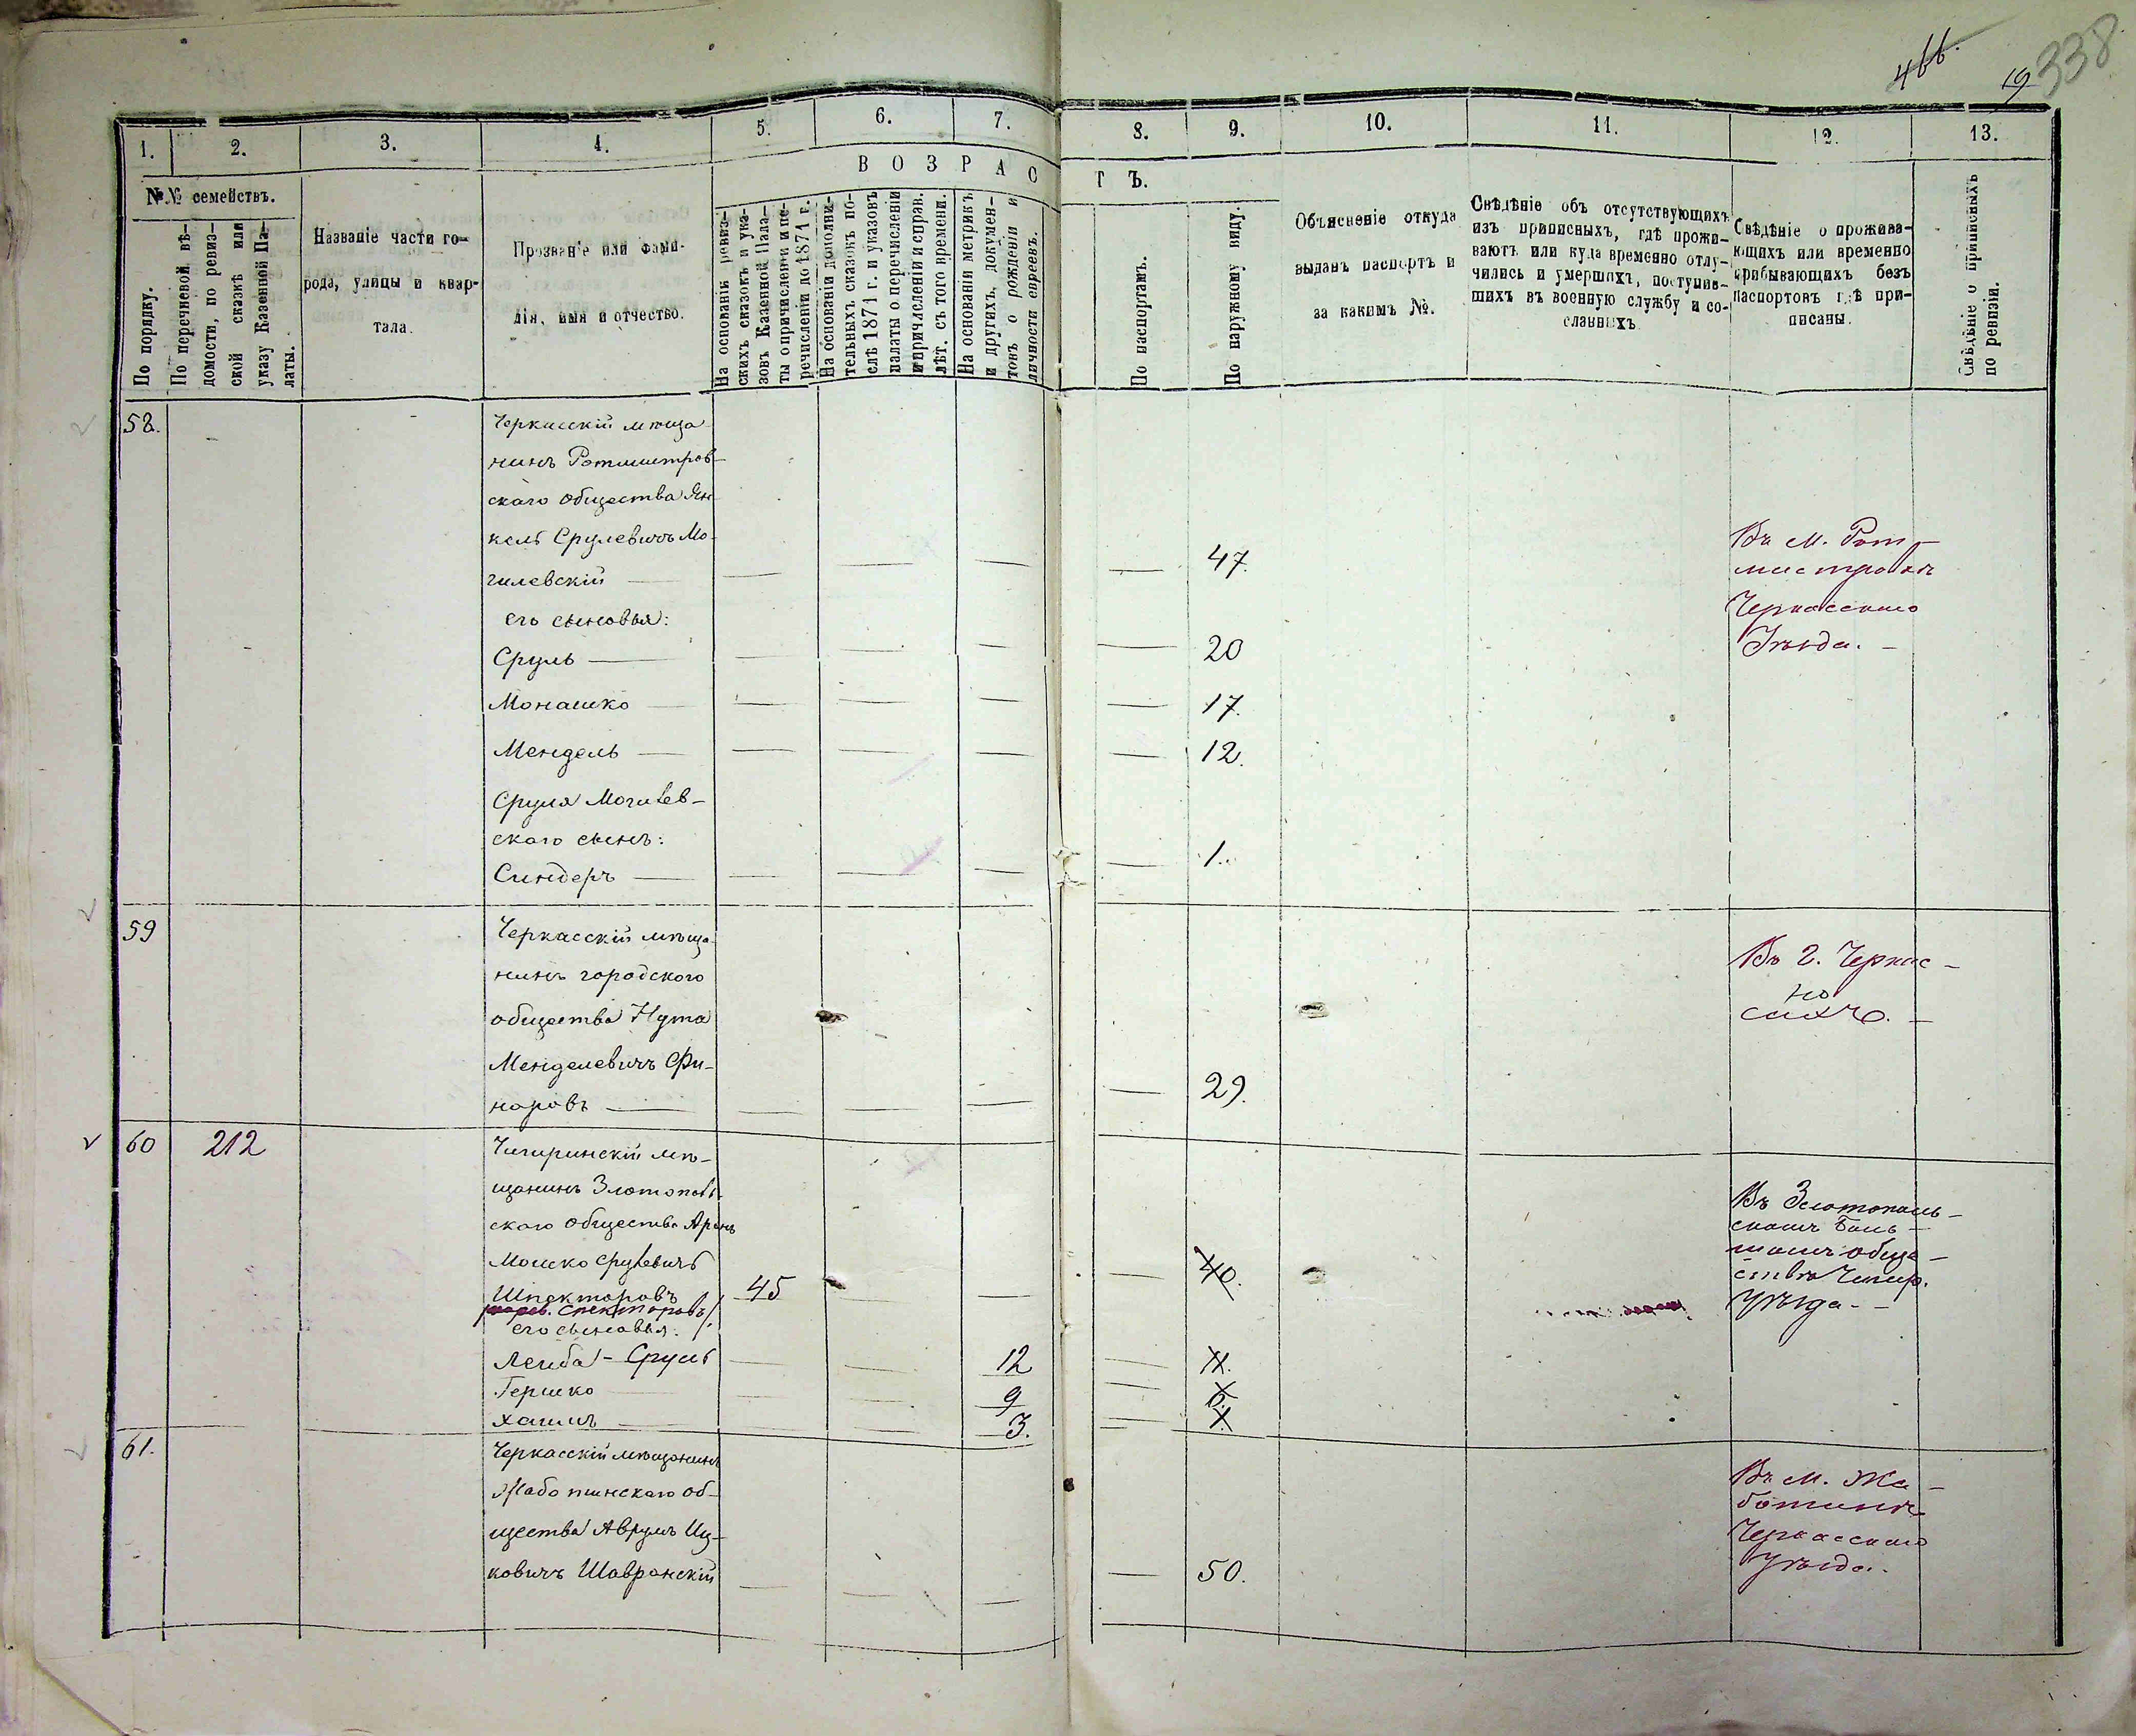 466.
19 338
1. 2. 3. 4. 5. 6. 7. 8. 9. 10. 11. 12. 13.
№№ семействъ.
ВОЗРАСТЪ.
По порядку.
По перечневой вѣ-
домости, по ревиз-
ской сказкѣ или
указу Казенной Па-
латы.
Названіе части го-
рода, улицы и квар-
тала.
Прозваніе или фами-
лія, имя и отчество.
На основаніи ревиз-
скихъ сказокъ и ука-
зовъ Казенной Пала-
ты о причисленіи и пе-
речисленіи до 1871 г.
На основаніи дополни-
тельныхъ сказокъ по-
слѣ 1871 г. и указовъ
палаты о перечисленіи
и причисленіи и справ.
лѣт. съ того времени.
На основаніи метрикъ
и другихъ, докумен-
товъ о рожденіи и
личности евреевъ.
По паспортамъ.
По наружному виду.
Объясненіе откуда
выданъ паспортъ и
за какимъ №.
Свѣдѣніе объ отсутствующихъ
изъ приписныхъ, гдѣ прожи-
ваютъ или куда временно отлу-
чились и умершихъ, поступив-
шихъ въ военную службу и со-
сланныхъ
Свѣдѣніе о прожива-
ющихъ или временно
прибывающихъ безъ
паспортовъ гдѣ при-
писаны.
Свѣдѣніе о приписныхъ
по ревизіи.
58.
Черкасскій мѣща-
нинъ Ротмистров-
скаго общества Ян
кель Срулевичъ Мо-
гилевскій — 47.
его сыновья:
Сруль — 20
Монашко — 17.
Мендель — 12.
Сруля Могилев-
скаго сынъ:
Синдеръ — 1.
Въ м. Рот-
мистровкѣ
Черкасскаго
Уѣзда. —
59
Черкасскій мѣща-
нинъ городского
общества Нута
Менделевичъ Фи-
наровъ — 29.
Въ г. Черкас-
сахъ. —
60 212
Чигиринскій мѣ-
щанинъ Златополь-
скаго общества Аронъ
Мошко Срулевичъ
Шпекторовъ 45 40.
Спекторовъ/.
его сыновья:
Лейба - Сруль 12 11.
Гершко 9
Хаимъ 3.
Въ Золотополь-
скомъ
общe-
ствѣ Чигир.
Уѣзда. —
61.
Черкасскій мѣщанинъ
Жаботинскаго об-
щества Аврумъ Иц-
ковичъ Шавранскій — 50.
Въ м. Жа-
ботинѣ
Черкасскаго
Уѣзда.